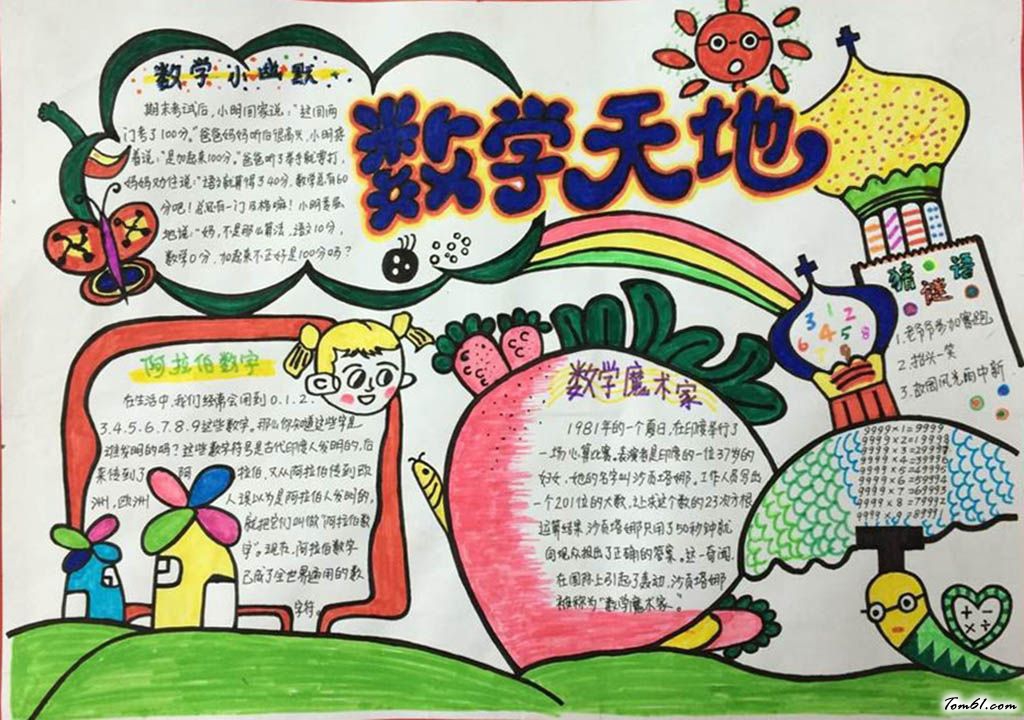 数学天地
数学小幽默
期末考试后,小明回家说:“这回两
门考了100分。”爸爸妈妈听后很高兴,小明接
着说:“是加起来100分。”爸爸听了举手就要打,
妈妈劝住说:“语文就算得了40分,数学总有60
分吧!总还有一门及格嘛!小明委屈
地说:“妈,不是那么算法,语文10分,
数学0分,加起来不正好是100分吗?
阿拉伯数字
在生活中,我们经常会用到0.1.2.
3.4.5.6.7.8.9这些数字。那么你知道这些字是
谁发明的吗?这些数字符号是古代印度人发明的,后
来传到了阿拉伯,又从阿拉伯传到欧
洲,欧洲人误以为是阿拉伯人发明的,
就把它们叫做“阿拉伯数
字”。现在,阿拉伯数字
已成了全世界通用的数
字符。
数学魔术家
1981年的一个夏日,在印度举行了
一场心算比赛。表演者是印度的一位37岁的
妇女,她的名字叫沙贡塔娜。工作人员写出
一个201位的大数,让求这个数的23次方根
运算结果,沙贡塔娜只用了50秒钟就
向观众报出了正确的答案。这一奇闻,
在国际上引起了轰动,沙贡塔娜
被称为“数学魔术家”。
3 1 2
6 4 5 8
猜谜语
1.老爷爷参加赛跑
2.抬头一笑
3.故国风光雨中新
9999×1=9999
9999×2=19998
9999×3=29997
9999×4=39996
9999×5=49995
9999×6=59994
9999×7=69993
9999×8=79992
9999×9=89991
+ -
× ÷
Tom61.com